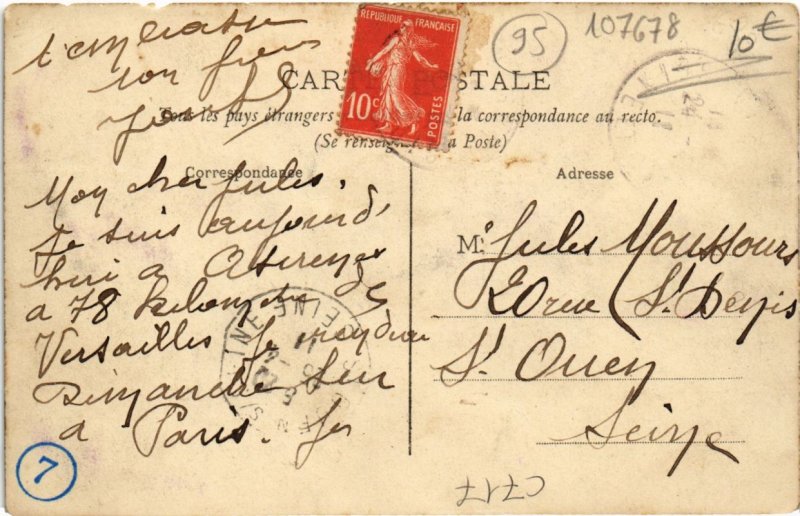 t'embrasse
ton frère
RÉPUBLIQUE FRANÇAISE
10c
POSTES
95
107678
10€
CARTE POSTALE
Tous les pays étrangers la correspondance au recto.
(Se renseigner à la Poste)
Correspondance
Mon cher Jules.
Je suis aujourd'
hui a
a 78 de
Versailles Je reviendrai
Dimanche
a Paris. Je
Adresse
Mr Jules Moussours
20 rue St Denis
St Ouen
Seine
7
C717